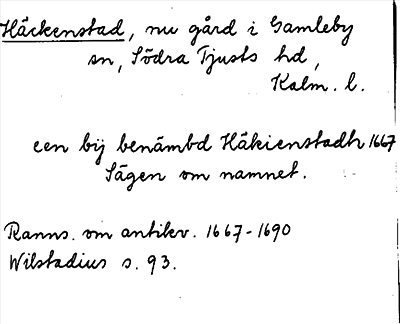 Häckenstad, nu gård i Gamleby
sn, Södra Tjusts hd,
Kalm. l.
een bij benämbd Häkienstadh 1667
Sägen om namnet.
Ranns. om antikv. 1667-1690
Wilstadius s. 93.